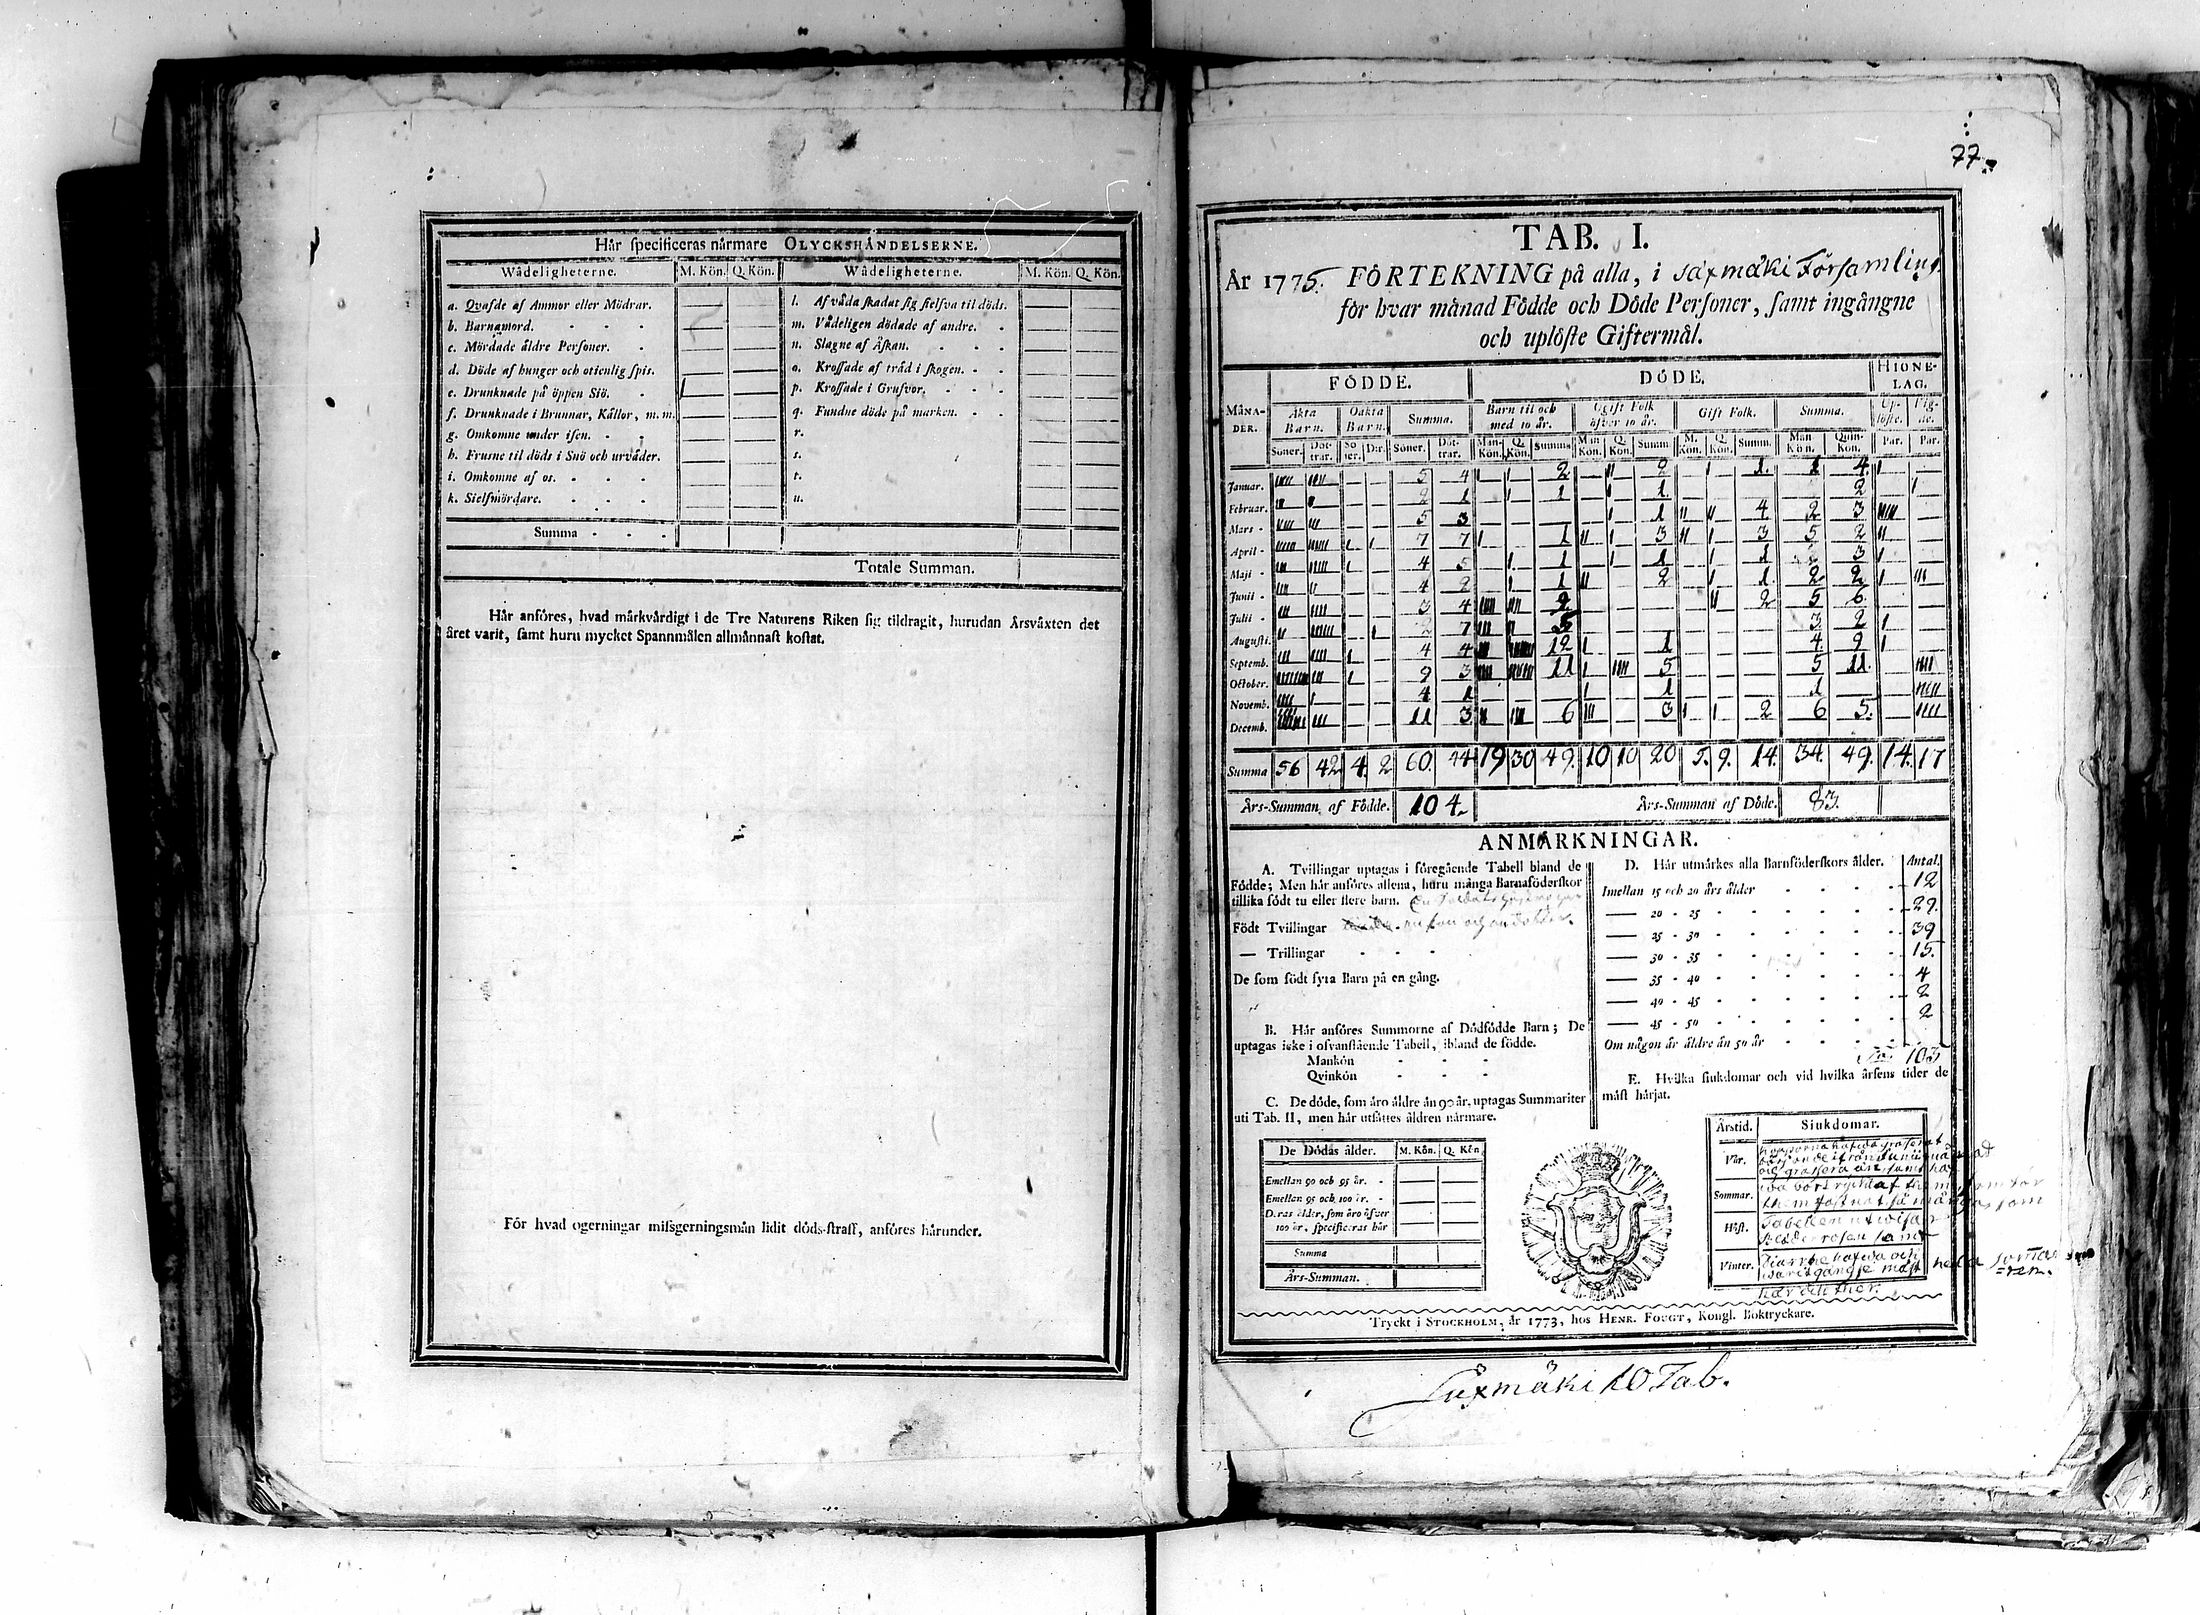 Hår specificeras nårmare OLYCKSHÅNDELSERNE.
Wådeligheterne. M. Kön. Q. Kön. Wådeligheterne. M. Kön. Q. Kön.
a. Qvafde af Ammor eller Mödrar. l. Af våda skadat sig sielfva til döds.
b. Barnamord. m. Vådeligen dödade af andre.
c. Mördade åldre Personer. n. Slagne af Åskan.
d. Döde af hunger och otienlig spis. o. Krossade af tråd i skogen.
e. Drunknade på öppen Siö. 1 p. Krossade i Grufvor.
f. Drunknade i Brunnar, Kållor, m. m. q. Fundne döde på marken.
g. Omkomne under isen. r.
h. Frusne til döds i Snö och urvåder. s.
i. Omkomne af os. t.
k. Sielfmördare. u.
Summa
Totale Summan.
Hår anföres, hvad mårkvårdigt i de Tre Naturens Riken sig tildragit, hurudan Årsvåxten det
året varit, samt huru mycket Spannmålen allmånnast kostat.
För hvad ogerningar missgerningsmån lidit döds-straff, anföres hårunder.
77.
TAB. I.
År 1775. FÖRTEKNING på alla, i Saxmäki Församling
för hvar månad Födde och Döde Personer, samt ingångne
och uplöste Giftermål.
MÅNA-DER. FÖDDE. DÖDE. HIONE-LAG.
Åkta Barn. Oåkta Barn. Summa. Barn til och med 10 år. Ogift Folk öfver 10 år. Gift Folk. Summa. Up-löste. Vig-de.
Söner. Döt-trar. Sö-ner. D:r. Söner. Döt-trar. Man-Kön. Q. Kön. Summa Man Kön. Q. Kön. Summ. M. Kön. Q. Kön. Summ. Man Kön. Quin-Kön. Par. Par.
Januar. 5 4 2 2 1. 1 4.
Februar. 2 1 1 1. 2
Mars 5 3 1 4 2 3
April 7 7 1 3 3 5 2
Maji 4 5 1 1 1 3
Junii 4 2 1 2 1. 2 2
Julii 3 4 2 5 6.
Augusti. 2 7 5 3 2
Septemb. 4 4 12 1 4 9
October. 9 3 11 5 5 11.
Novemb. 4 1 1 1
Decemb. 11 3 6 3 2 6 5.
Summa 56 42 4. 2 60. 44 19 30 49. 10 10 20 5. 9. 14. 34. 49. 14. 17
Års-Summan af Födde. 104. Års-Summan af Döde. 83.
ANMÅRKNINGAR.
A. Tvillingar uptagas i föregående Tabell bland de
Födde; Men hår anföres allena, huru många Barnaföderskor
tillika födt tu eller flere barn.
Födt Tvillingar
— Trillingar
De som födt fyra Barn på en gång.
B. Hår anföres Summorne af Dödfödde Barn; De
uptagas icke i ofvanstående Tabell, ibland de födde.
Mankön
Qvinkön
C. De döde, som åro åldre ån 90 år, uptagas Summariter
uti Tab. II, men hår utsåttes åldren nårmare.
De Dödas ålder. M. Kön. Q. Kön
Emellan 90 och 95 år.
Emellan 95 och 100 år.
Deras ålder, som åro öfver
100 år, specificeras hår
Summa
Års-Summan.
D. Hår utmårkes alla Barnföderskors ålder. Antal.
Imellan 15 och 20 års ålder 12
— 20 - 25 29.
— 25 - 30 39
— 30 - 35 15.
— 35 - 40 4
— 40 - 45 2
— 45 - 50 2
Om någon år åldre ån 50 år
103
E. Hvilka siukdomar och vid hvilka årsens tider de
måst hårjat.
Årstid. Siukdomar.
Vår.
Sommar.
Höst. Tabellen utwisar
Vinter.
Tryckt i STOCKHOLM, år 1773, hos HENR. FOUGT, Kongl. Boktryckare.
Saxmäki 10 Tab.